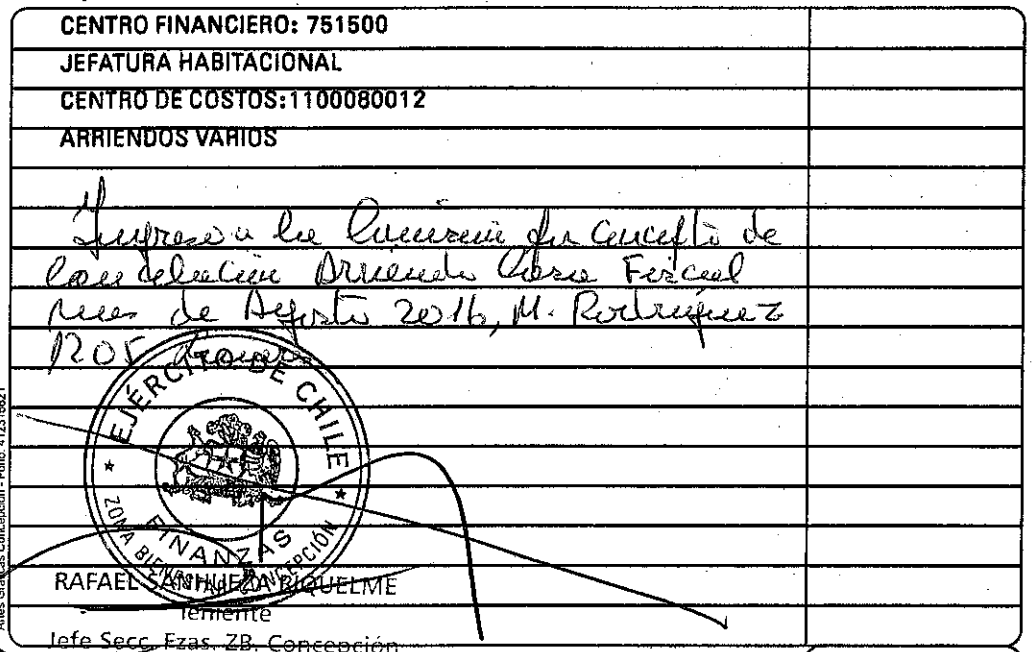 CENTRO FINANCIERO: 751500
JEFATURA HABITACIONAL
CENTRO DE COSTOS:1100080012
ARRIENDOS VARIOS
Ingreso a la Comisaria por Concepto de
Cancelación Arriendo Casa Fiscal
mes de Agosto 2016, M. Rodriguez
1205
EJÉRCITO DE CHILE
FINANZAS
ZONA BIENESTAR CONCEPCIÓN
RAFAEL SANHUEZA RIQUELME
Teniente
Jefe Secc. Fzas. ZB. Concepción
Artes Gráficas Concepción - Fono: 412316621